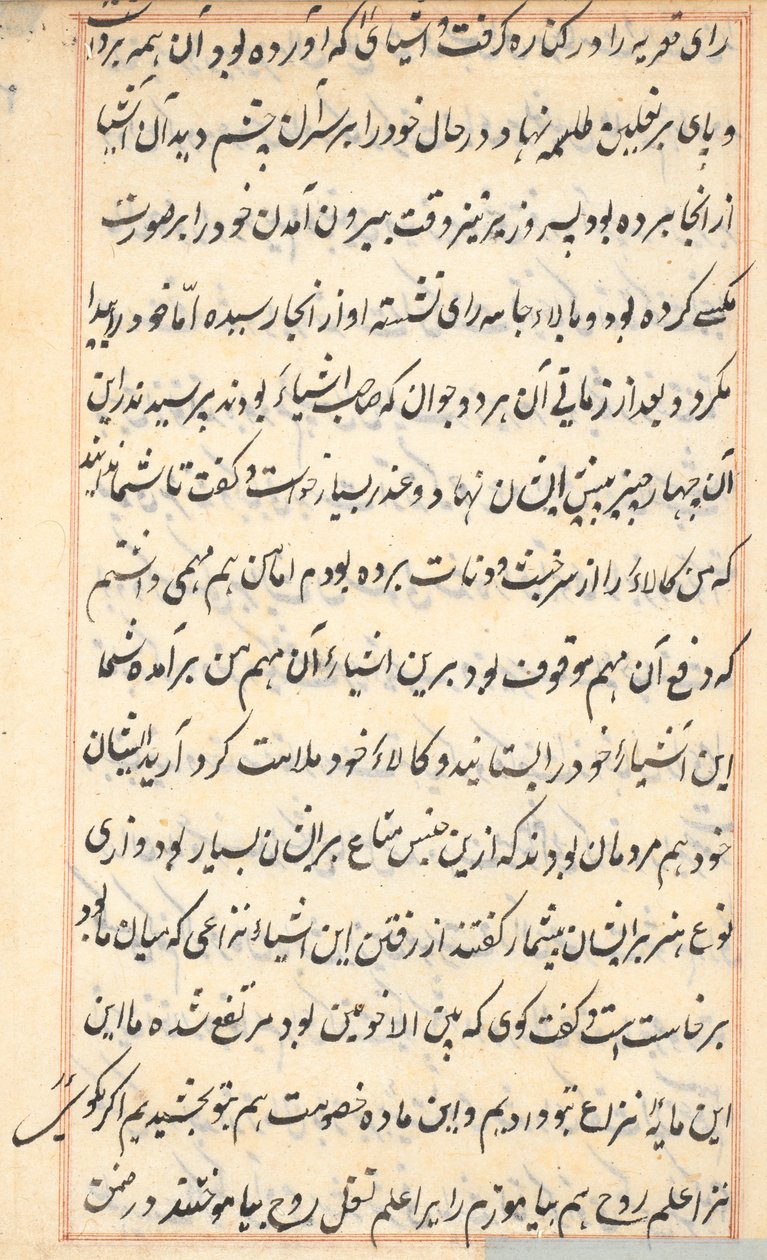 رای قعریه را در کناره گرفت و اشیای که آورده بود آن همه برداشت
و پای بر نعلین طلسم نهاد و در حال خود را بر سر آن چشم دید آن اشیا
از انجا برده بود پسر وزیر نیز وقت بیرون آمدن خود را بر صورت
مکسی کرده بود و بالاء جامه رای نشسته او از انجا رسیده امّا خود را پیدا
مکرد و بعد از زمانی آن هر دو جوان که صاحب اشیاء بودند پرسیدند راین
آن چهار چیز پیش ایشان نهاد و عذر بسیار خواست و گفت تا شما
که من کالاء را از سر خبث و دنات برده بودم اما من هم مهمی داشتم
که دفع آن مهم موقوف بود برین اشیاء آن مهم من برآمده شما
این اشیاء خود را بستانید و کالاء خود ملامت کرد آرید ایشان
خود هم مردمان بودند که ازین جنس متاع بر ایشان بسیار بود و ازی
نوع هنر بر ایشان بیشمار گفتند از رفتن این اشیاء نزاعی که میان ما بود
برخاست است و گفت کوی که بین الاخوین بود مرتفع شده ما این
این مایهٔ نزاع بتو دادیم و این ماده خصومت هم بتو بخشیدیم اکر بکوئی
ترا علم روح هم بیاموزم رایرا علم نقل روح بیاموختند در ضمن